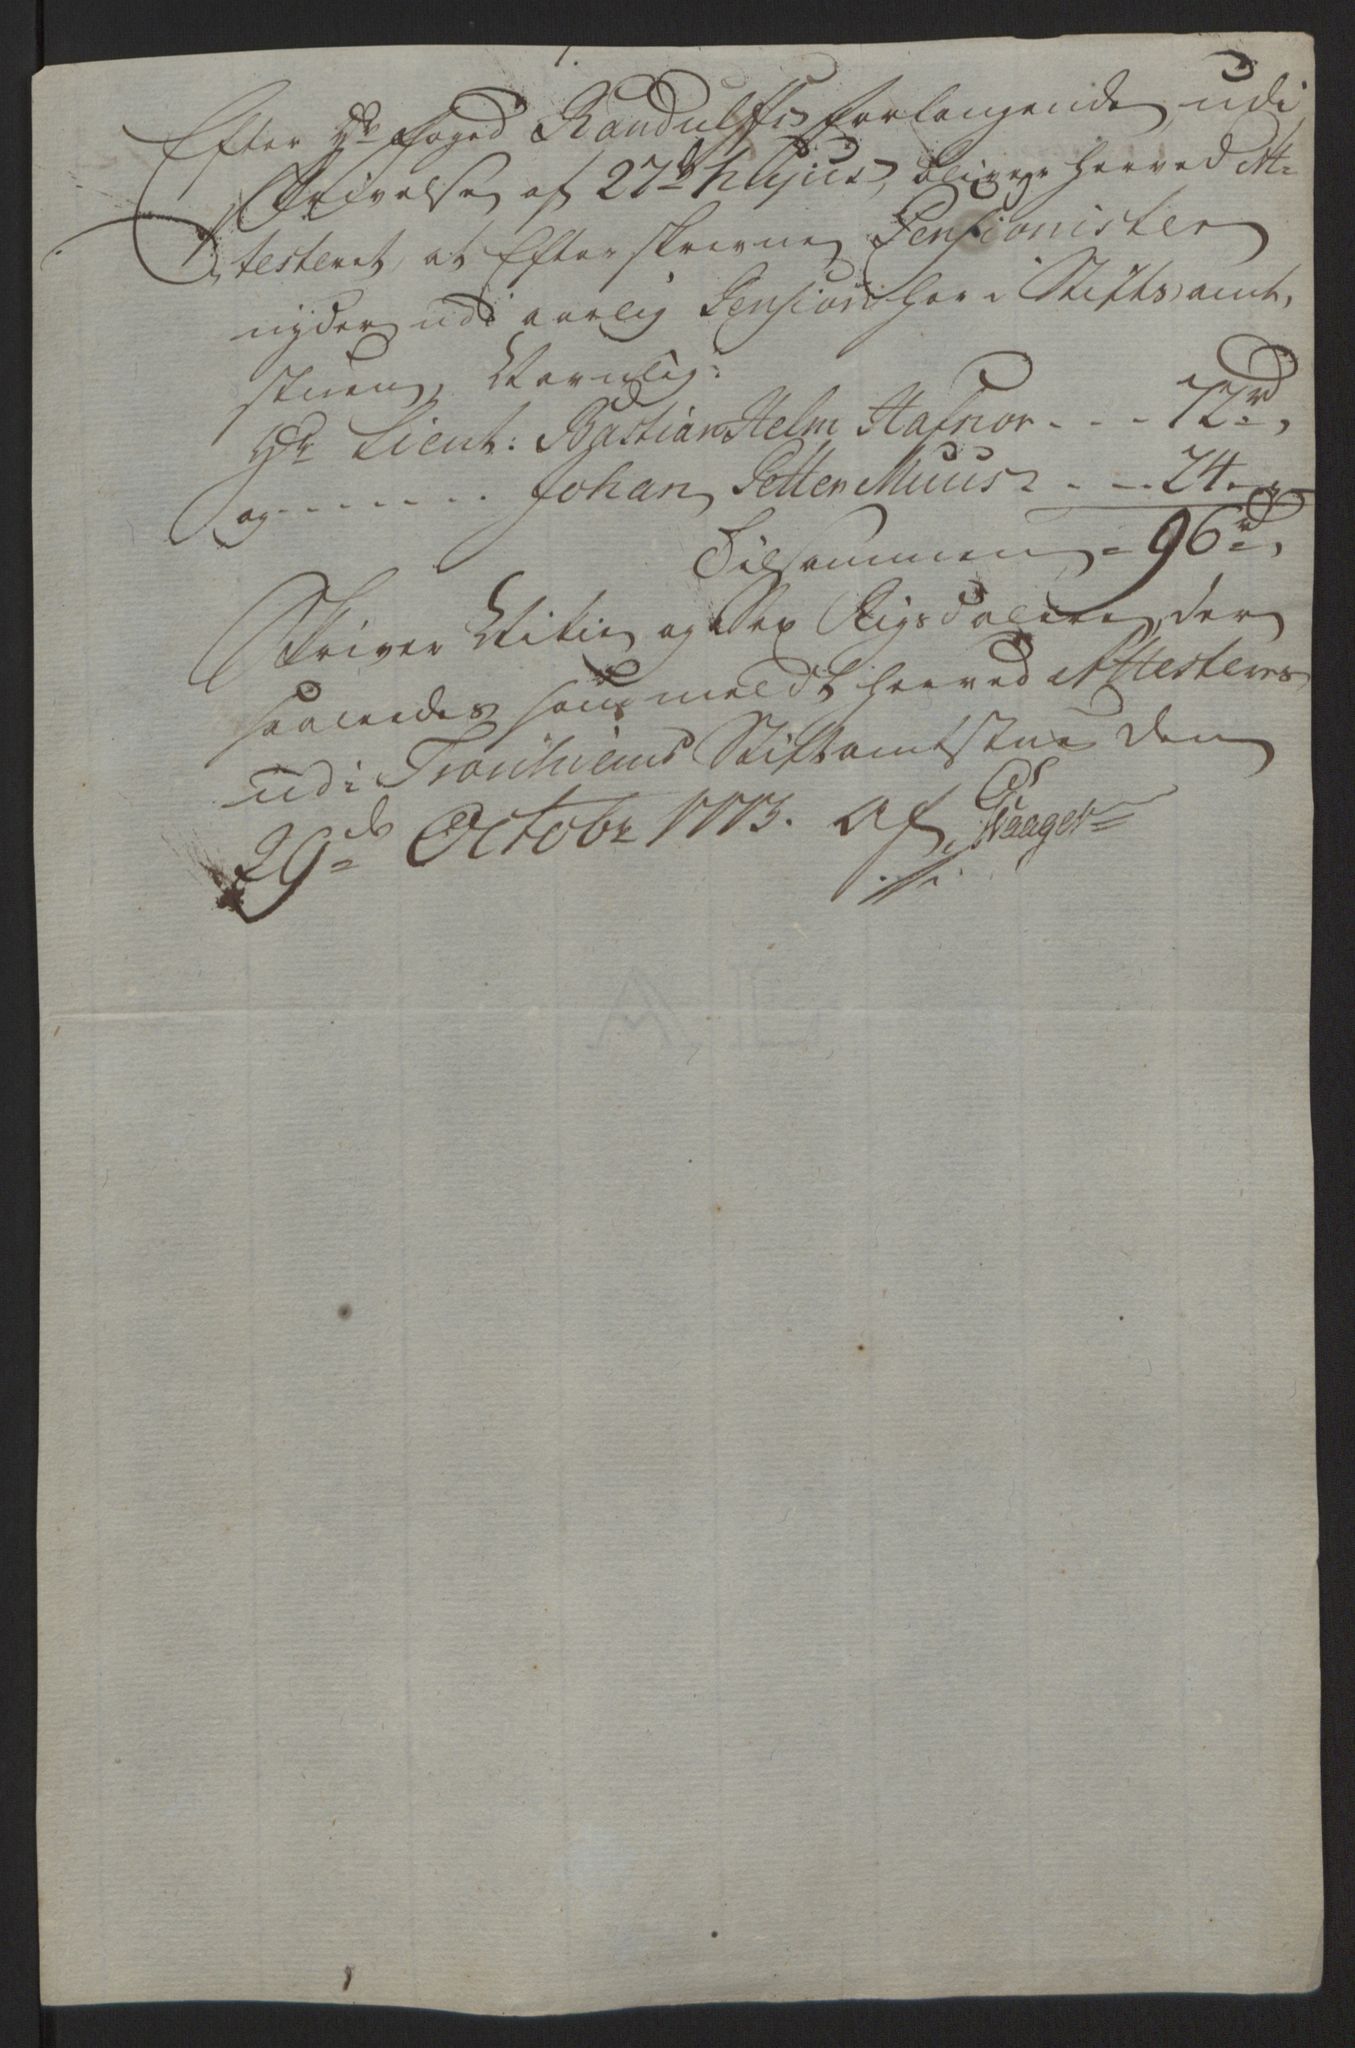 Efter Hr Foged Randulffs forlangende udi
Skrivelse af 27de hujus, bliver herved At-
testeret, at Efterskrevne Pensionister
nyder udi aarlig Pension her i Stiftsamt,
stuen, Navnlig:
Hr Lieut: Bastian Helm Hafnor - - - 72rd,
og - - - - - - Johan Petter Muus - - - 24 -
Tilsammen = 96rd,
Skriver Nitie og Sex Rigsdalere, der
saaledes som meldt herved Attesteres
udi Tronhiems Stiftamtstue den
29de Octobr 1773. af